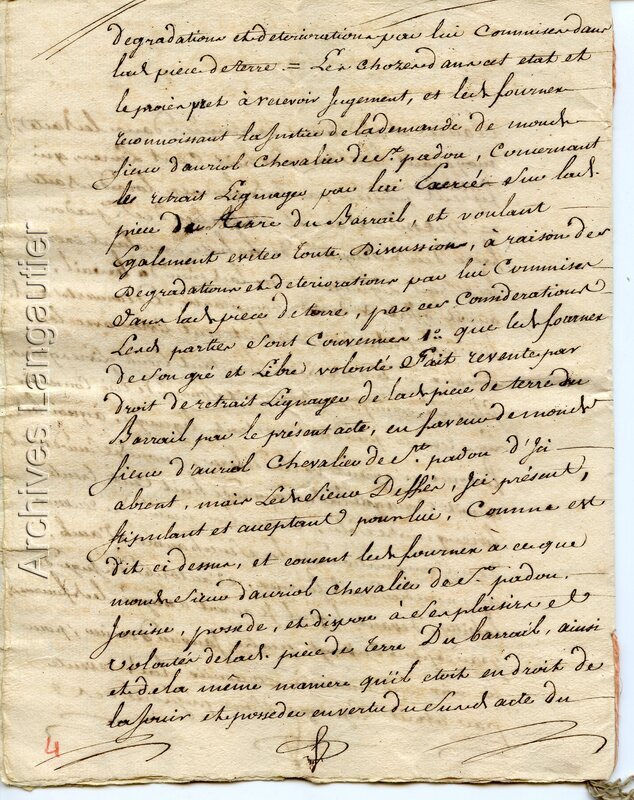 degradations et deteriorations par lui Commises dans
lad. piece de terre = Les Choses dans cet etat et
le procès pret à recevoir Jugement, et led. fournes
reconnoissant la Justice de la demande de mond.
sieur dauriol Chevalier de St. padou, Concernant
le retrait Lignager par lui Exercé Sur lad.
piece de terre du Barrail, et voulant
Egalement eviter toute Discussion, à raison des
Degradations et deteriorations par lui Commises
dans lad. piece de terre, par ces Considerations
Lesd. parties sont Convenues 1º. que led. fournes
de son gré et Libre volonté Fait revente par
droit de retrait Lignager de lad. piece de terre du
Barrail par le présent acte, en faveur de mond.
sieur d'auriol Chevalier de St. padou d'Ici
absent, mais Led. Sieur Ici présent,
stipulant et acceptant pour lui, Comme est
dit ci dessus, et consent led. fournes à ce que
mond. Sieur dauriol Chevalier de St. padou.
Jouisse, possede, et dispose à Ses plaisirs et
volontés de lad. pièce de Terre Du barrail, ainsi
et de la même maniere qu'il etoit en droit de
la Jouir et posseder en vertu du Susd. acte du
4
Archives Langautier